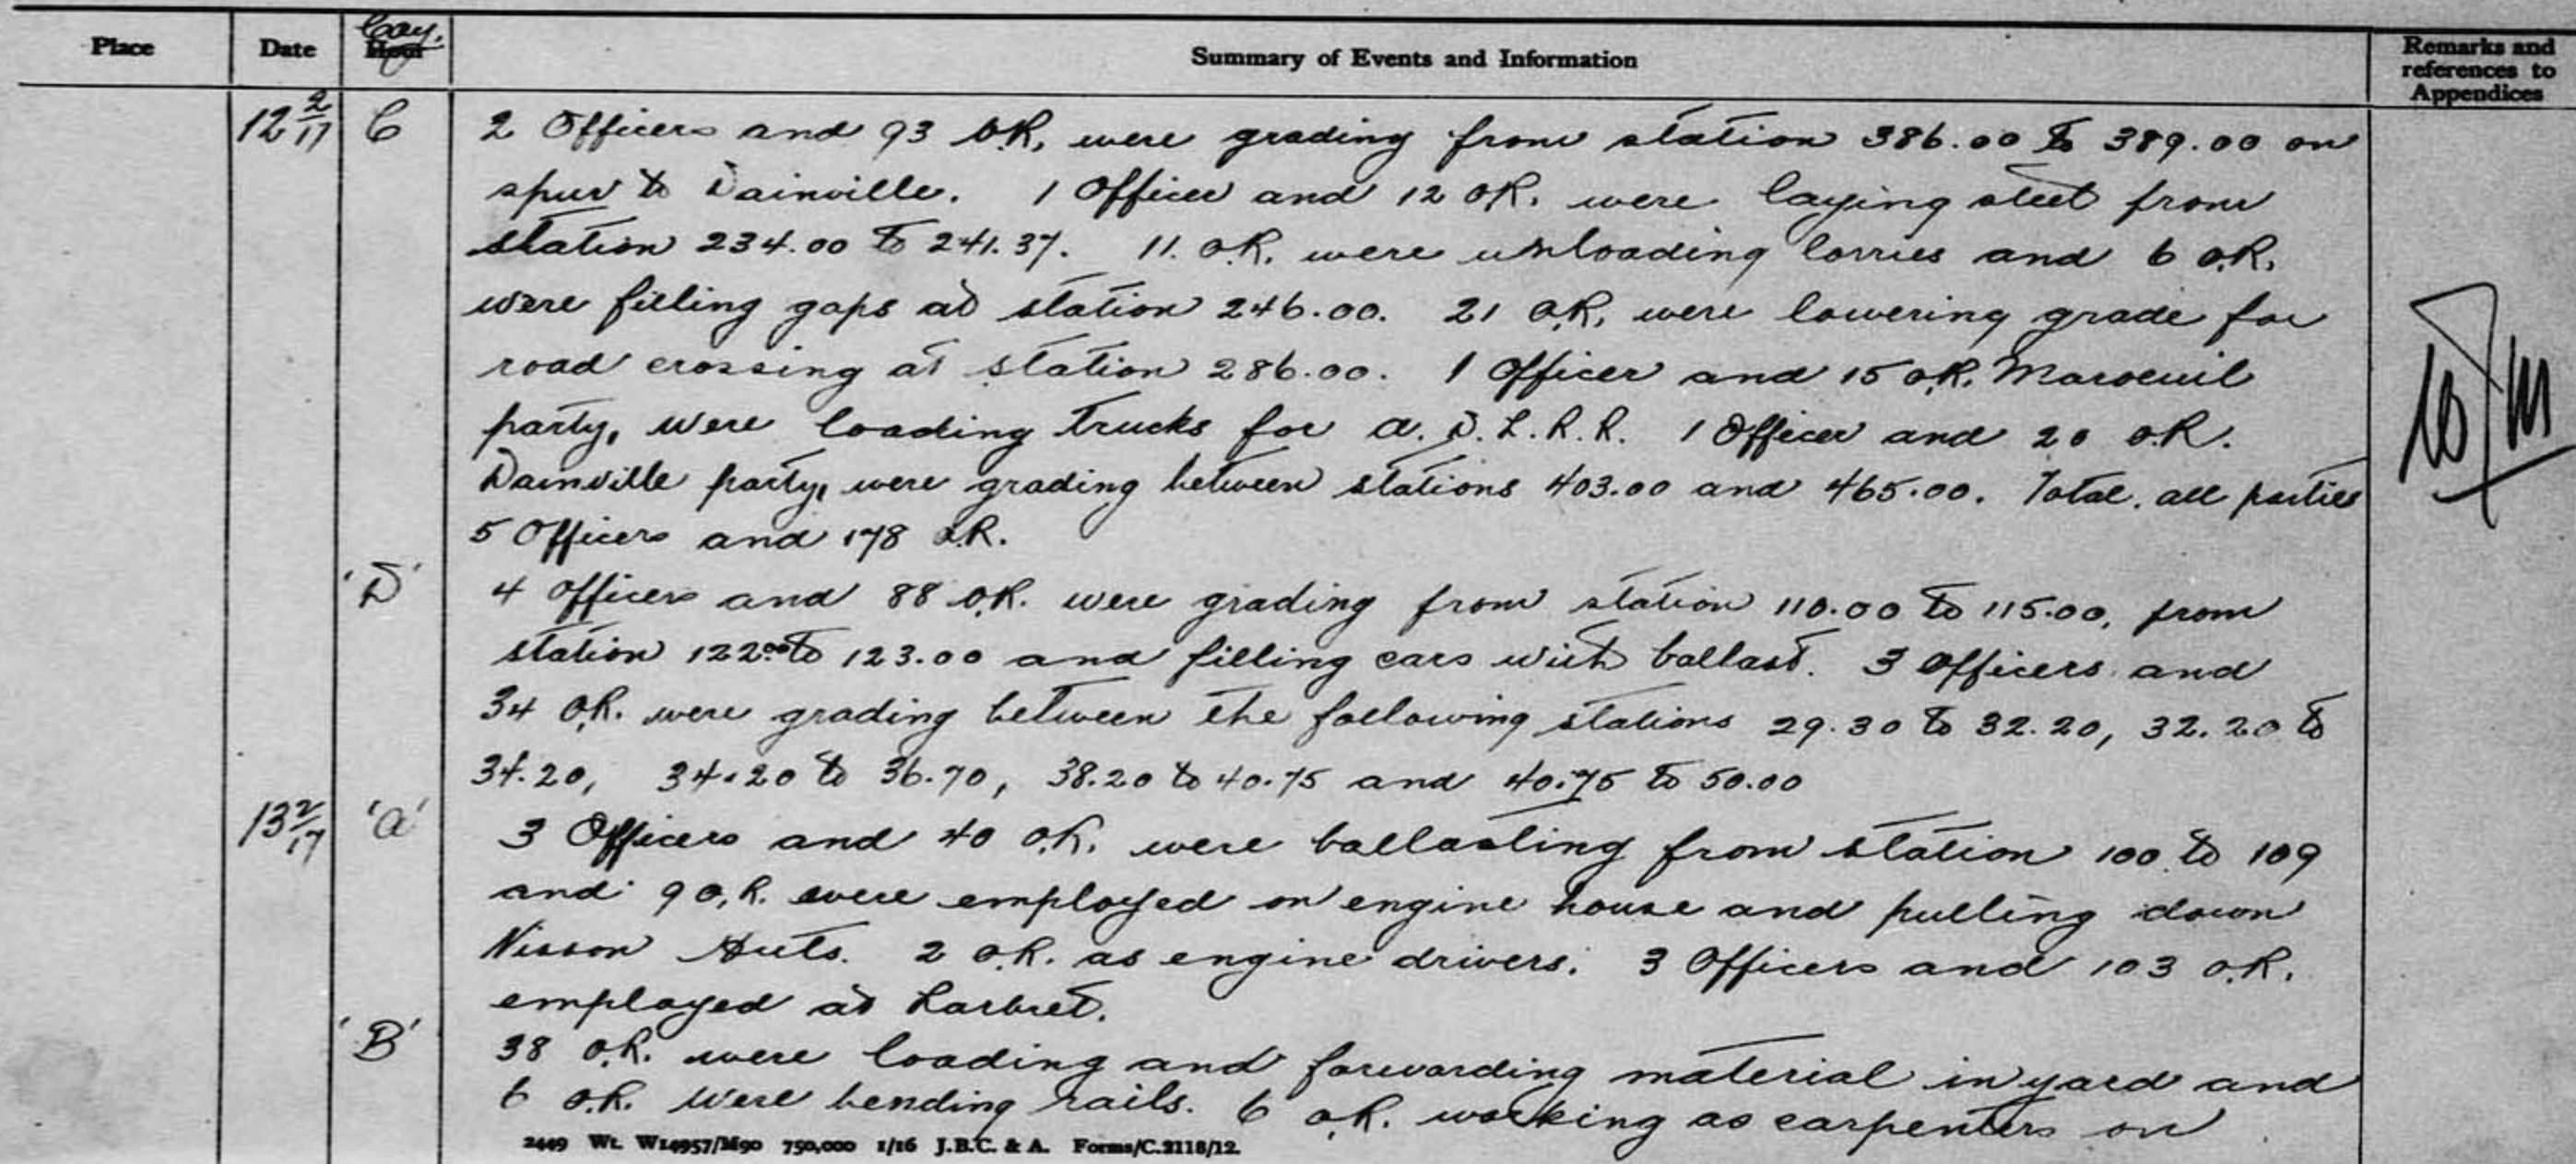 Place Date Coy. Hour Summary of Events and Information Remarks and references to Appendices
12 2/17 C 2 Officers and 93 O.R. were grading from station 386.00 to 389.00 on
spur to Dainville. 1 Officer and 12 O.R. were laying steel from
station 234.00 to 241.37. 11. O.R. were unloading lorries and 6 O.R.
were filling gaps at station 246.00. 21 O.R. were lowering grade for
road crossing at station 286.00. 1 Officer and 15 O.R. Maroeuil
party, were loading trucks for A.D.L.R.R. 1 Officer and 20 O.R.
Dainville party, were grading between stations 403.00 and 465.00. Total, all parties
5 Officers and 178 O.R.
'D' 4 Officers and 88 O.R. were grading from station 110.00 to 115.00, from
station 122.00 to 123.00 and filling cars with ballast. 3 Officers and
34 O.R. were grading between the following stations 29.30 to 32.20, 32.20 to
34.20, 34.20 to 36.70, 38.20 to 40.75 and 40.75 to 50.00
13 2/17 'A' 3 Officers and 40 O.R. were ballasting from station 100 to 109
and 9 O.R. were employed on engine house and pulling down
Nisson Huts. 2 O.R. as engine drivers. 3 Officers and 103 O.R.
employed at Larbret.
'B' 38 O.R. were loading and forwarding material in yard and
6 O.R. were bending rails. 6 O.R. working as carpenters on
2449 Wt. W14957/M90 750,000 1/16 J.B.C. & A. Forms/C.2118/12.